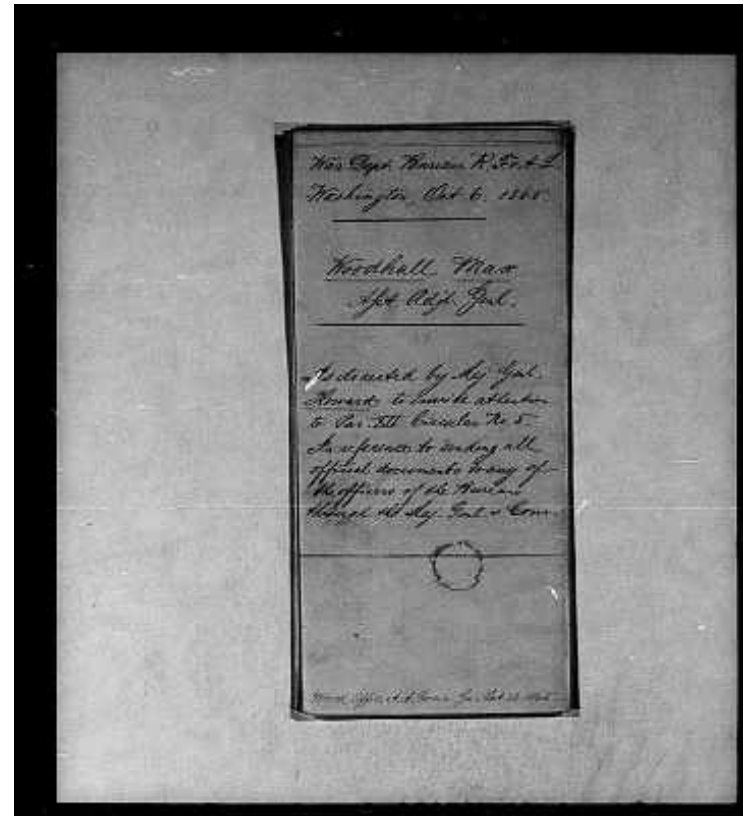 War Dept. Bureau R. F. & A. L
Washington, Oct 6. 1865.
Woodhull Max
Asst. Adjt. Genl.
Is directed by Maj Genl.
Howard to invite attention
to Par. III Circular No. 5
In reference to sending all
official documents to any of
the officers of the Bureau
through the Maj. Genl & Com.
Office Oct 1865